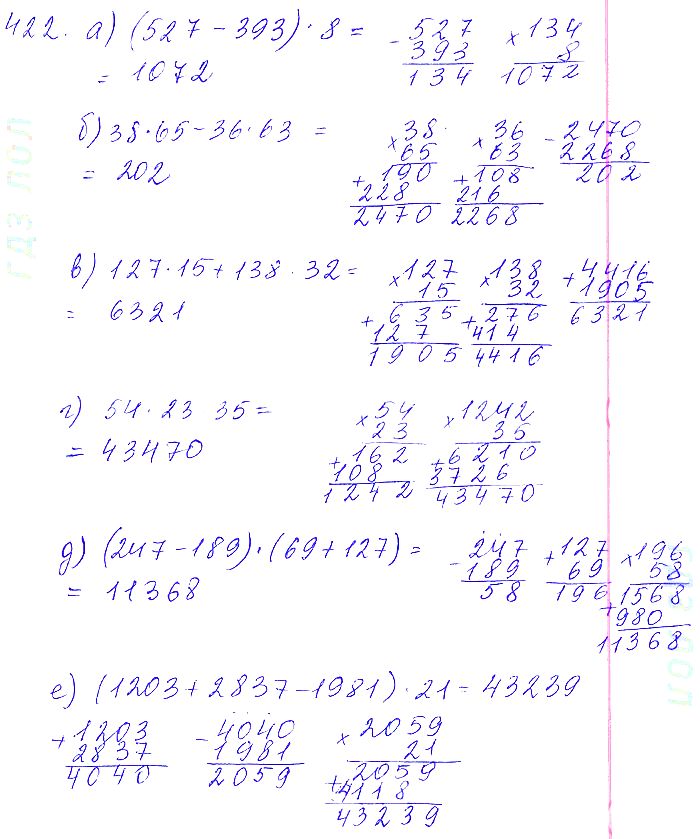 422. а) (527 - 393) · 8 =
= 1072
- 527
393
134
× 134
8
1072
б) 38 · 65 - 36 · 63 =
= 202
× 38
65
+ 190
228
2470
× 36
63
+ 108
216
2268
- 2470
2268
202
в) 127 · 15 + 138 · 32 =
= 6321
× 127
15
+ 635
127
1905
× 138
32
+ 276
414
4416
+ 4416
1905
6321
г) 54 · 23 35 =
= 43470
× 54
23
+ 162
108
1242
× 1242
35
+ 6210
3726
43470
д) (247 - 189) · (69 + 127) =
= 11368
- 247
189
58
+ 127
69
196
× 196
58
1568
+ 980
11368
е) (1203 + 2837 - 1981) · 21 = 43239
+ 1203
2837
4040
- 4040
1981
2059
× 2059
21
+ 2059
4118
43239
гдз пол